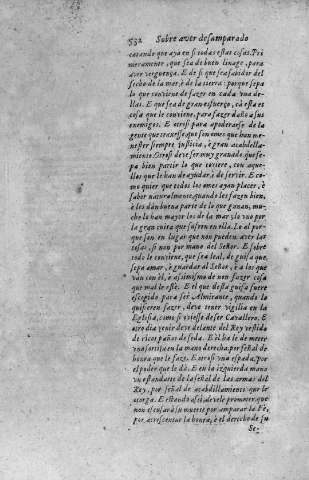 532 Sobre aver desamparado
catando que aya en si todas estas cosas. Pri
meramente, que sea de buen linage, para
aver verguença. E de si que sea sabidor del
fecho de la mar, è de la tierra: porque sepa
lo que conviene de fazer en cada vna de-
llas. E que sea de gran esfuerço, cà esta es
cosa que le conviene, para fazer daño a sus
enemigos. E otrosi para apoderarse de la
gente que traxesse, que son omes que han me-
nester siempre justicia, è gran acabdella-
miento. Otrosi deve ser muy granado, que se-
pa bien partir lo que toviere, con aque-
llos que le han de ayudar, è de servir. E co-
mo quier que todos los omes ayan plazer, è
sabor naturalmente, quando les fazen bien,
è les dàn buena parte de lo que ganan, mu-
cho lo han mayor los de la mar: lo vno por
la gran cuita que sufren en ella. Lo al por-
que son en lugar que non pueden aver las
cosas, si non por mano del Señor. E sobre
todo le conviene, que sea leal, de guisa que
sepa amar, è guardar al Señor, è a los que
van con èl, è a si mismo de non fazer cosa
que mal le estè. E el que desta guisa fuere
escogido para ser Almirante, quando lo
quisieren fazer, deve tener vigilia en la
Eglesia, como si oviesse de ser Cavallero. E
otro dia venir deve delante del Rey vestido
de ricos paños de seda. E èl ha le de meter
vna sortija en la mano derecha por señal de
honra que le faze. E otrosi vna espada, por
el poder que le dà. E en la izquierda mano
vn estandarte de la señal de las armas del
Rey, por señal de acabdillamiento que le
otorga. E estando assi, devele prometer que
non escusarà su muerte por amparar la Fè,
por acrescentar la honra, è el derecho de su
Se-